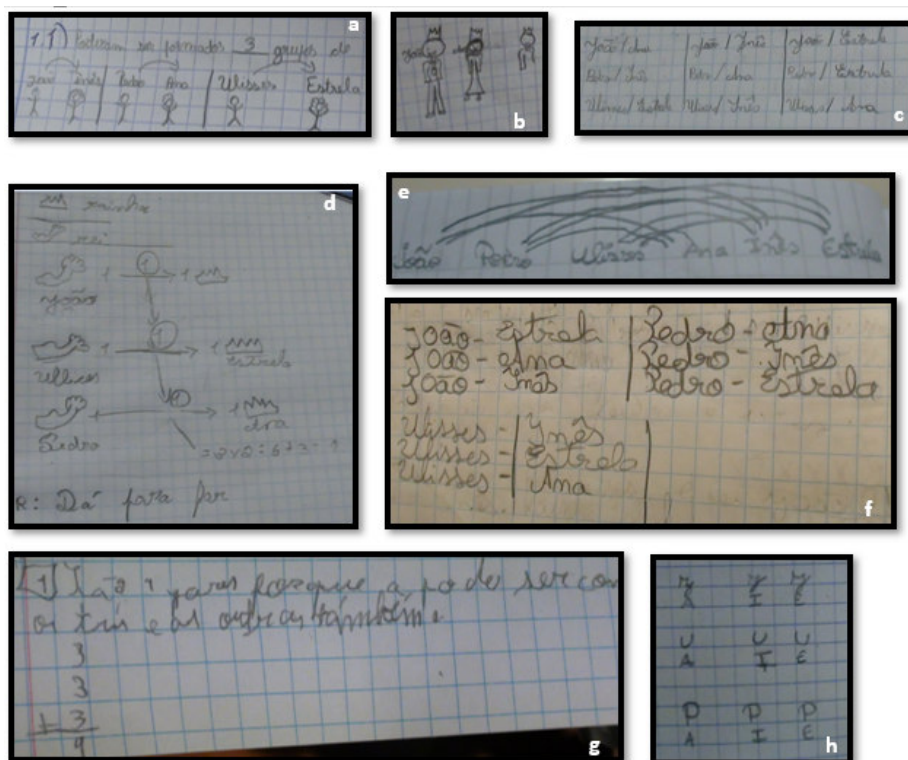 a
1.1) Poderam ser formados 3 grupos de
João Inês Pedro Ana Ulisses Estrela
b
c
João/Ana João/Inês João/Estrela
Pedro/Inês Pedro/Ana Pedro/Estrela
Ulisses/Estrela Ulisses/Inês Ulisses/Ana
d
rainha
rei
+ 1 + 
João
+ 1 1
Ulisses Estrela
+ 1
Pedro Ana
R: Dá para for
e
João Pedro Ulisses Ana Inês Estrela
João - Estrela Pedro - Ana
João - Ana Pedro - Inês
João - Inês Pedro - Estrela
Ulisses - Inês
Ulisses - Estrela
Ulisses - Ana
f
1) pares porque a pode ser com
os três e as outras também.
3
3
+ 3
9
g
J J J
A I E
U U U
A I E
P P P
A I E
h